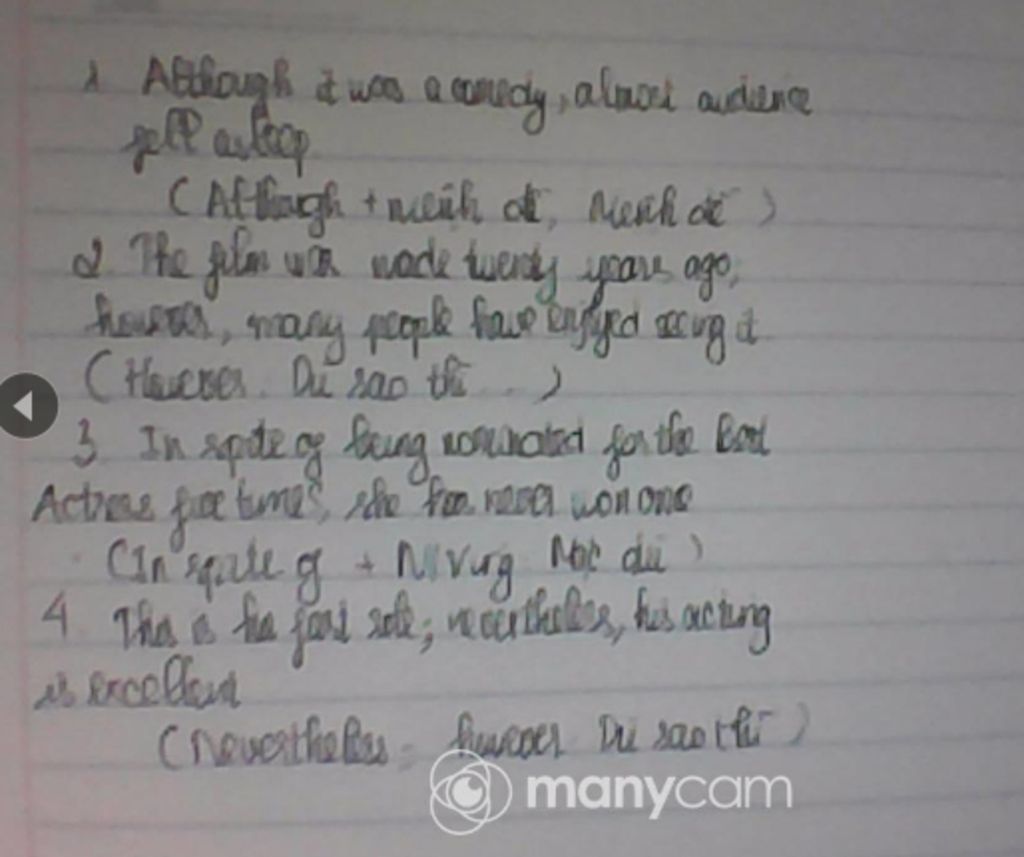 1 Although it was a comedy, almost audience
fell asleep
(Although + mệnh đề, Mệnh đề)
2 The film was made twenty years ago,
however, many people have enjoyed seeing it
(However Dù sao thì ..)
3 In spite of being nominated for the Best
Actress five times, she has never won one
(In spite of + N/Ving Mặc dù)
4 This is his first role; nevertheless, his acting
is excellent
(Nevertheless = however Dù sao thì)
manycam